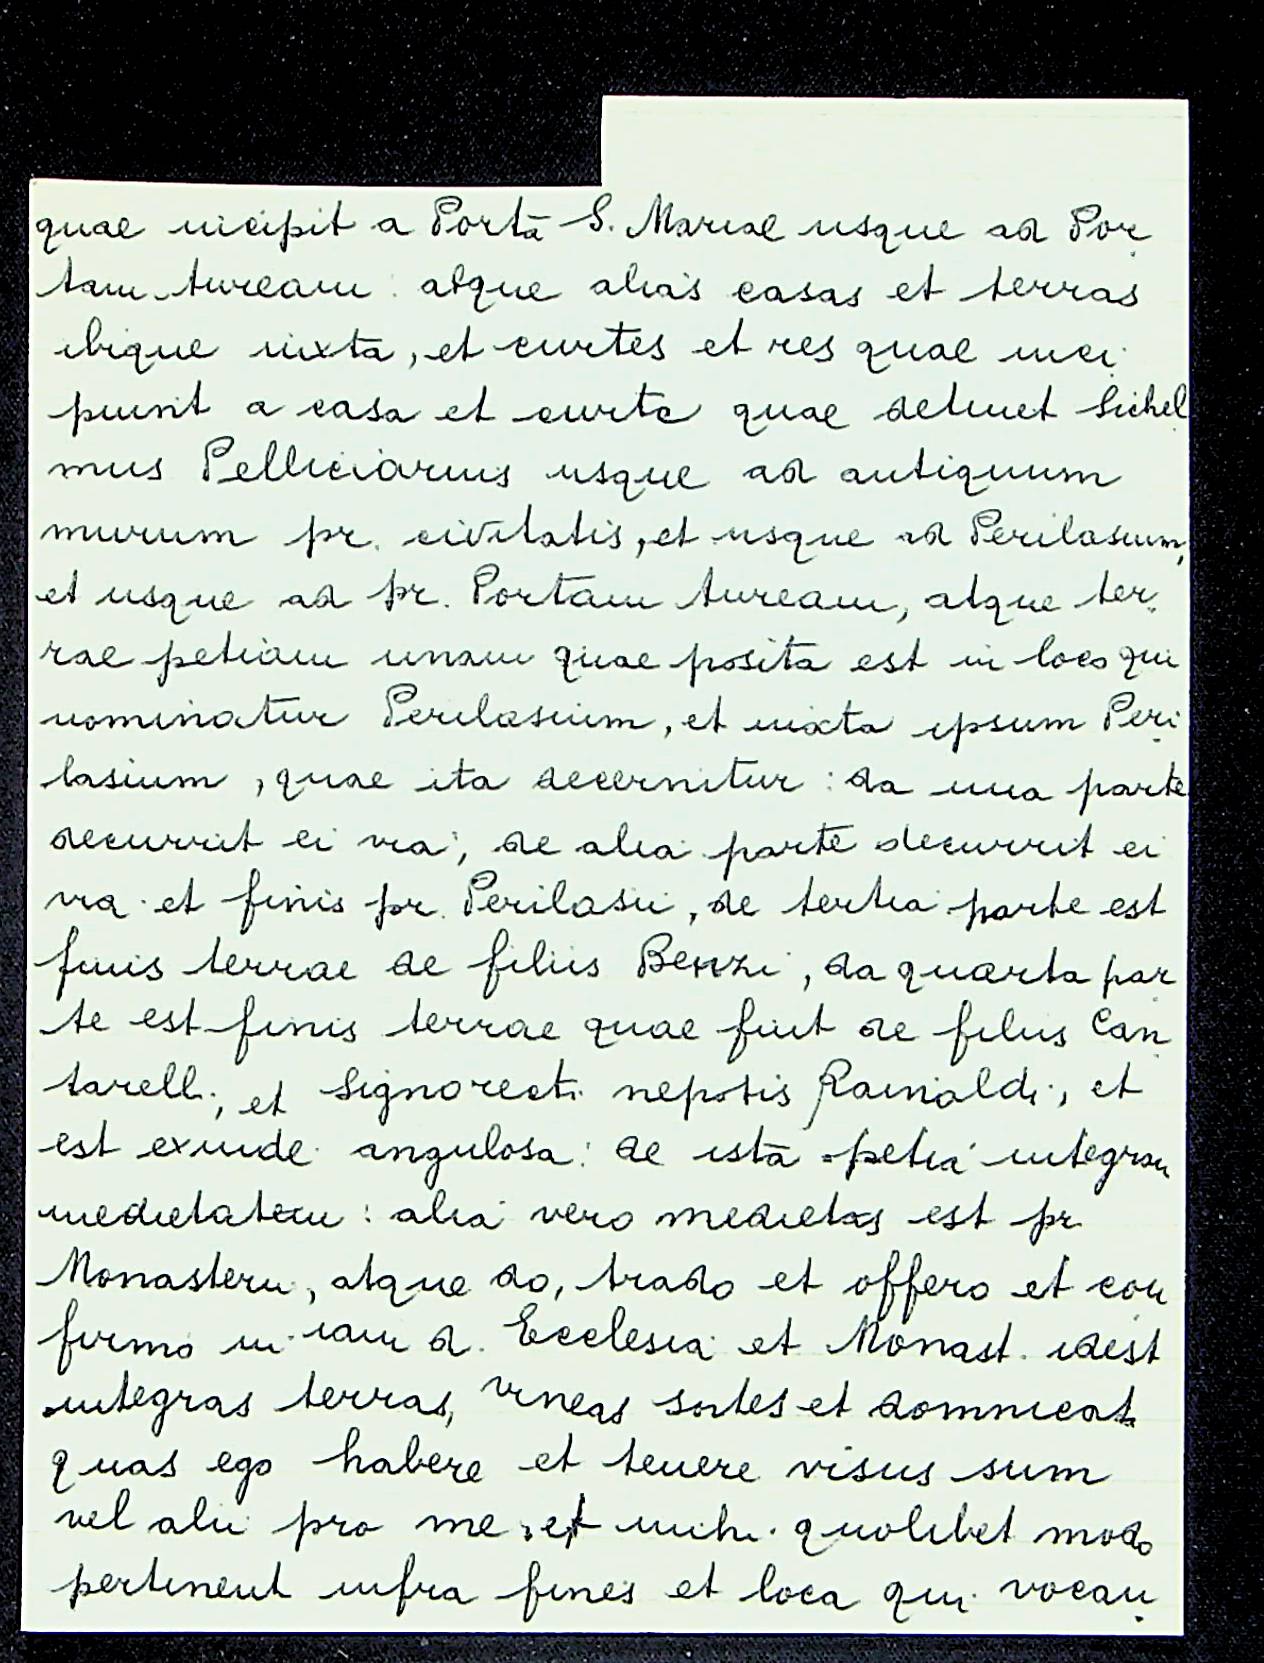 quae incipit a Portā S. Mariae usque ad Por
tam Auream : atque alias casas et terras
ibique iuxta, et curtes et res quae inci
piunt a casa et curte quae detinet Sichel
mus Pelliciarius usque ad antiquum
murum pr. civitatis, et usque ad Perilasium,
et usque ad pr. Portam Auream, atque ter
rae petiam unam quae posita est in loco qui
nominatur Perilasium, et iuxta ipsum Peri
lasium, quae ita decernitur : da una parte
decurrit ei via, de alia parte decurrit ei
via et finis pr. Perilasii, de tertia parte est
finis terrae de filiis Benzi, da quarta par
te est finis terrae quae fuit de filiis Can
tarelli, et Signorecti nepotis Rainaldi, et
est exinde angulosa : de istā petiā integram
medietatem : alia vero medietas est pr
Monasterii, atque do, trado et offero et con
firmo in iam d. Ecclesia et Monast. idest
integras terras, vineas sortes et domnicat
quas ego habere et tenere visus sum
vel alii pro me, et mihi quolibet modo
pertinent infra fines et loca qui vocan